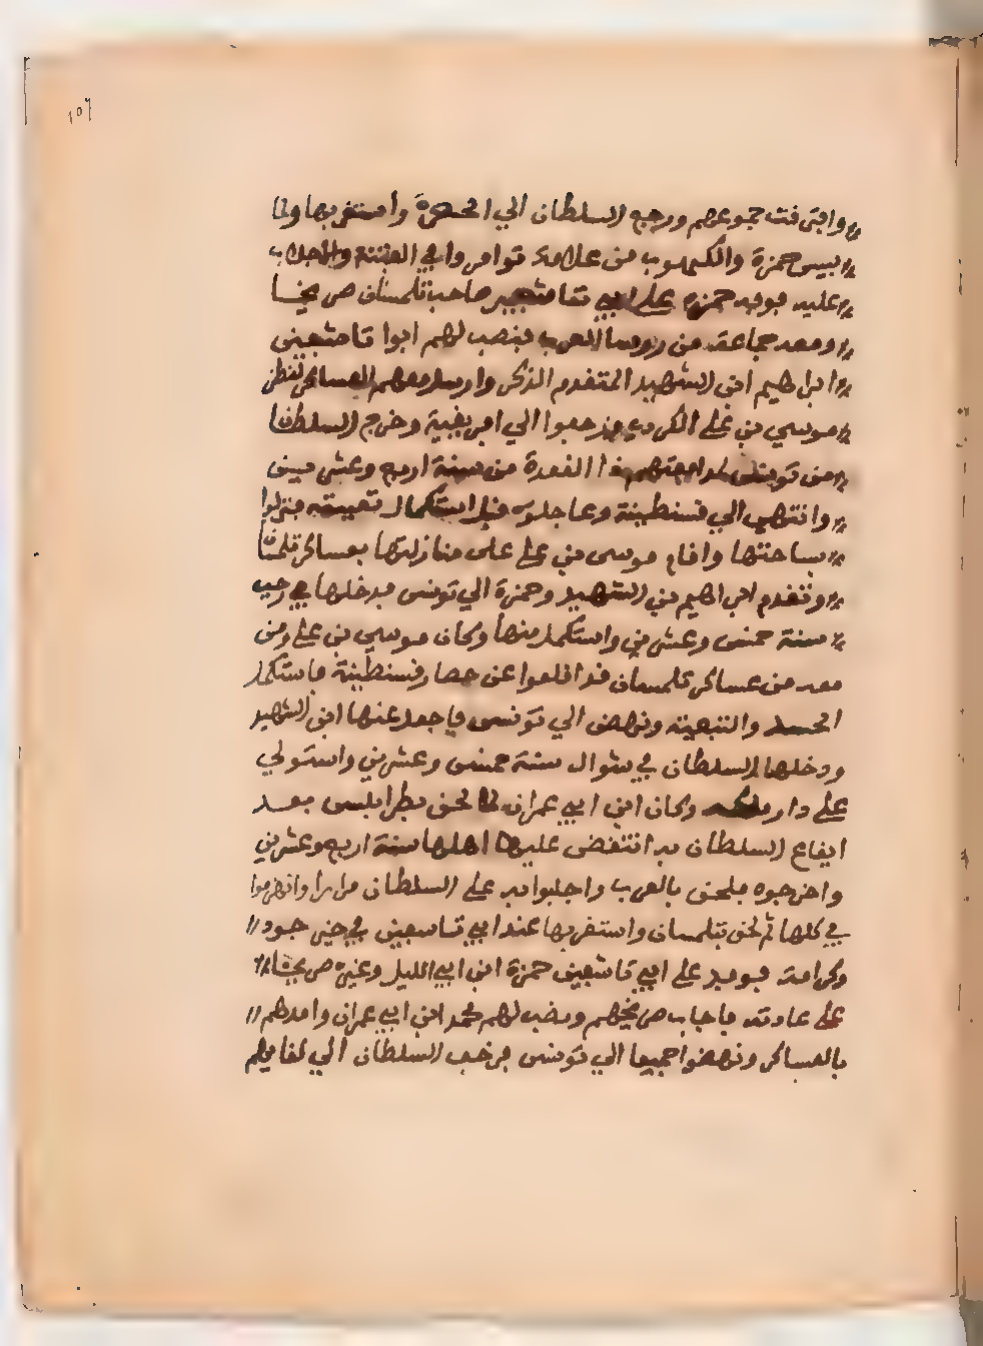 ١٥٦
وافترقت جموعهم ورجع السلطان الي الحضرة واستقر بها ولما
يبس حمزة والكـعوب من علا توامروا في الفتنة والاجلاب
عليه فوفد حمزه علي ابي تاشفين صاحب تلمسان صريخا
ومعه جماعة من روسا العرب فنصب لهم ابوا تاشفين
ابراهيم ابن الشهيد المتقدم الذكر وارسل معهم العساكر لنظر
موسي بن علي الكردي وزحفوا الي افريقية وخرج السلطان
من تونس لمدافعتهم ذا القعدة من سنة اربع وعشرين
وانتهي الي قسنطينة وعاجلوه قبل استكمال تعبيته فنزلوا
بساحتها واقام موسى بن علي على منازلتها بعساكر تلمسان
وتقدم ابراهيم بن الشهيد وحمزة الي تونس فدخلها في رجب
سنة خمس وعشرين واستكمل منها وكان موسي بن علي ومن
معه من عساكر تلمسان قد اقلعوا عن حصار قسنطينة فاستكمل
الحشد والتبعية ونهض الي تونس فاجفل عنها ابن الشهيد
ودخلها السلطان في شوال سنة خمس وعشرين واستولي
علي دار ملكه وكان ابن ابي عمران لما لحق بطرابلس بعد
ايقاع السلطان به انتقض عليها اهلها سنة اربع وعشرين
واخرجوه فلحق بالعرب واجلبوا به علي السلطان مرارا وانهزموا
في كلها ثم لحق بتلمسان واستقر بها عند ابي تاشفين في خير جود
وكرامة فوفد علي ابي تاشفين حمزة ابن ابي الليل وغيره صريخا
علي عادته فاجاب صريخهم ونصب لهم محمد ابن ابي عمران وامدهم
بالعساكر ونهضوا جميعا الي تونس فرحب السلطان الي لقايهم